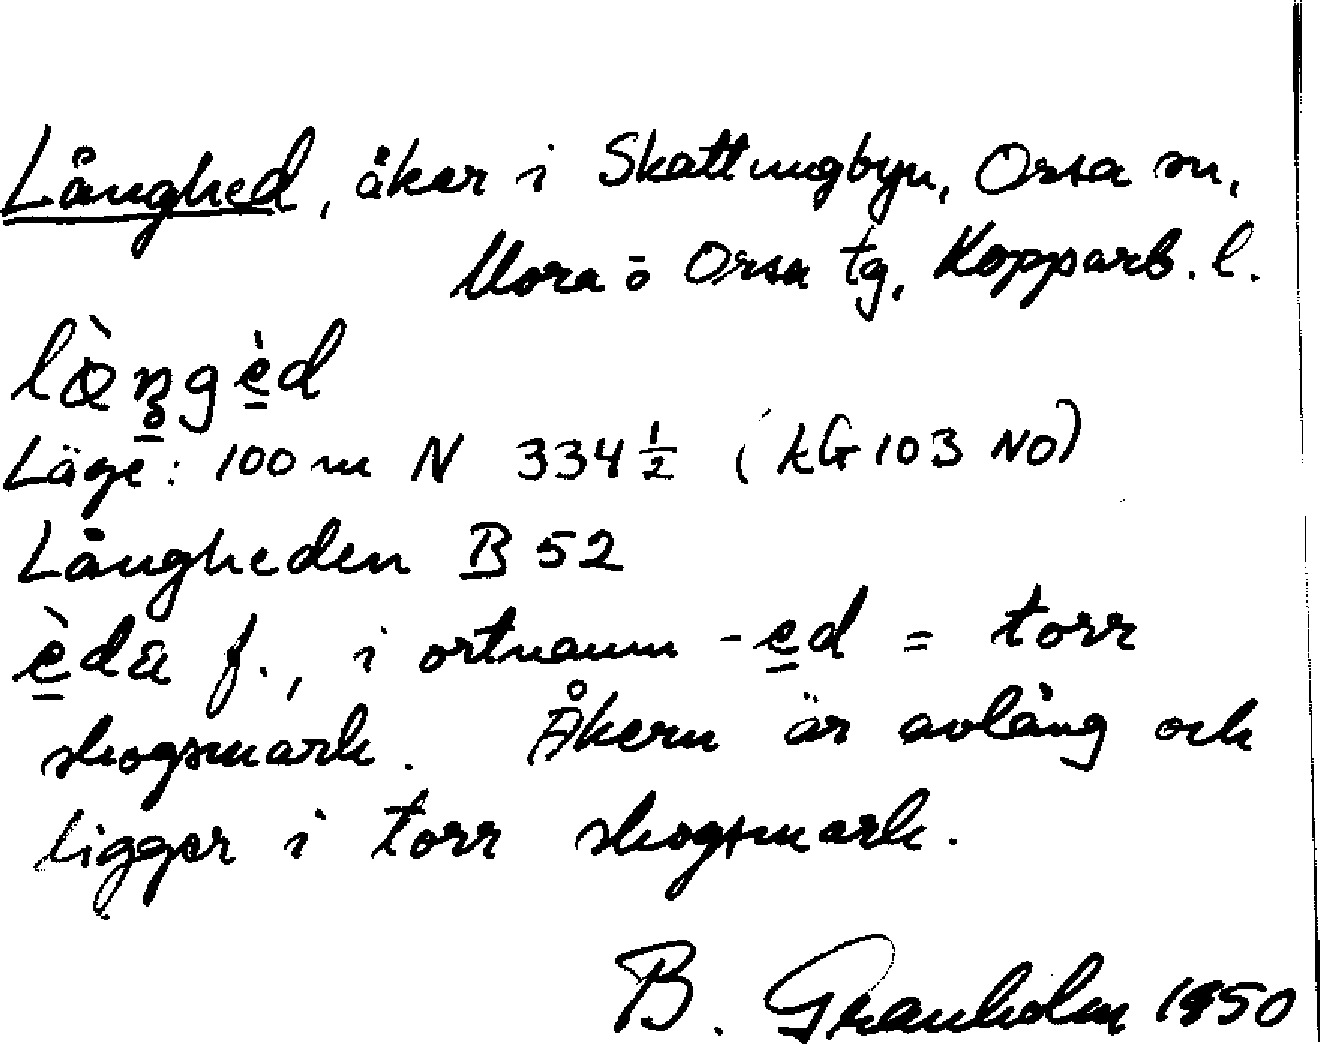 Långhed, åker i Skattungbyn, Orsa sn,
Mora o Orsa tg, Kopparb. l.
Läge: 100 m N 334 ½ (kG 103 NO)
Långheden B 52
f., i ortnamn -ed = torr
skogsmark. Åkern är avlång och
ligger i torr skogsmark.
B. Granholm 1950